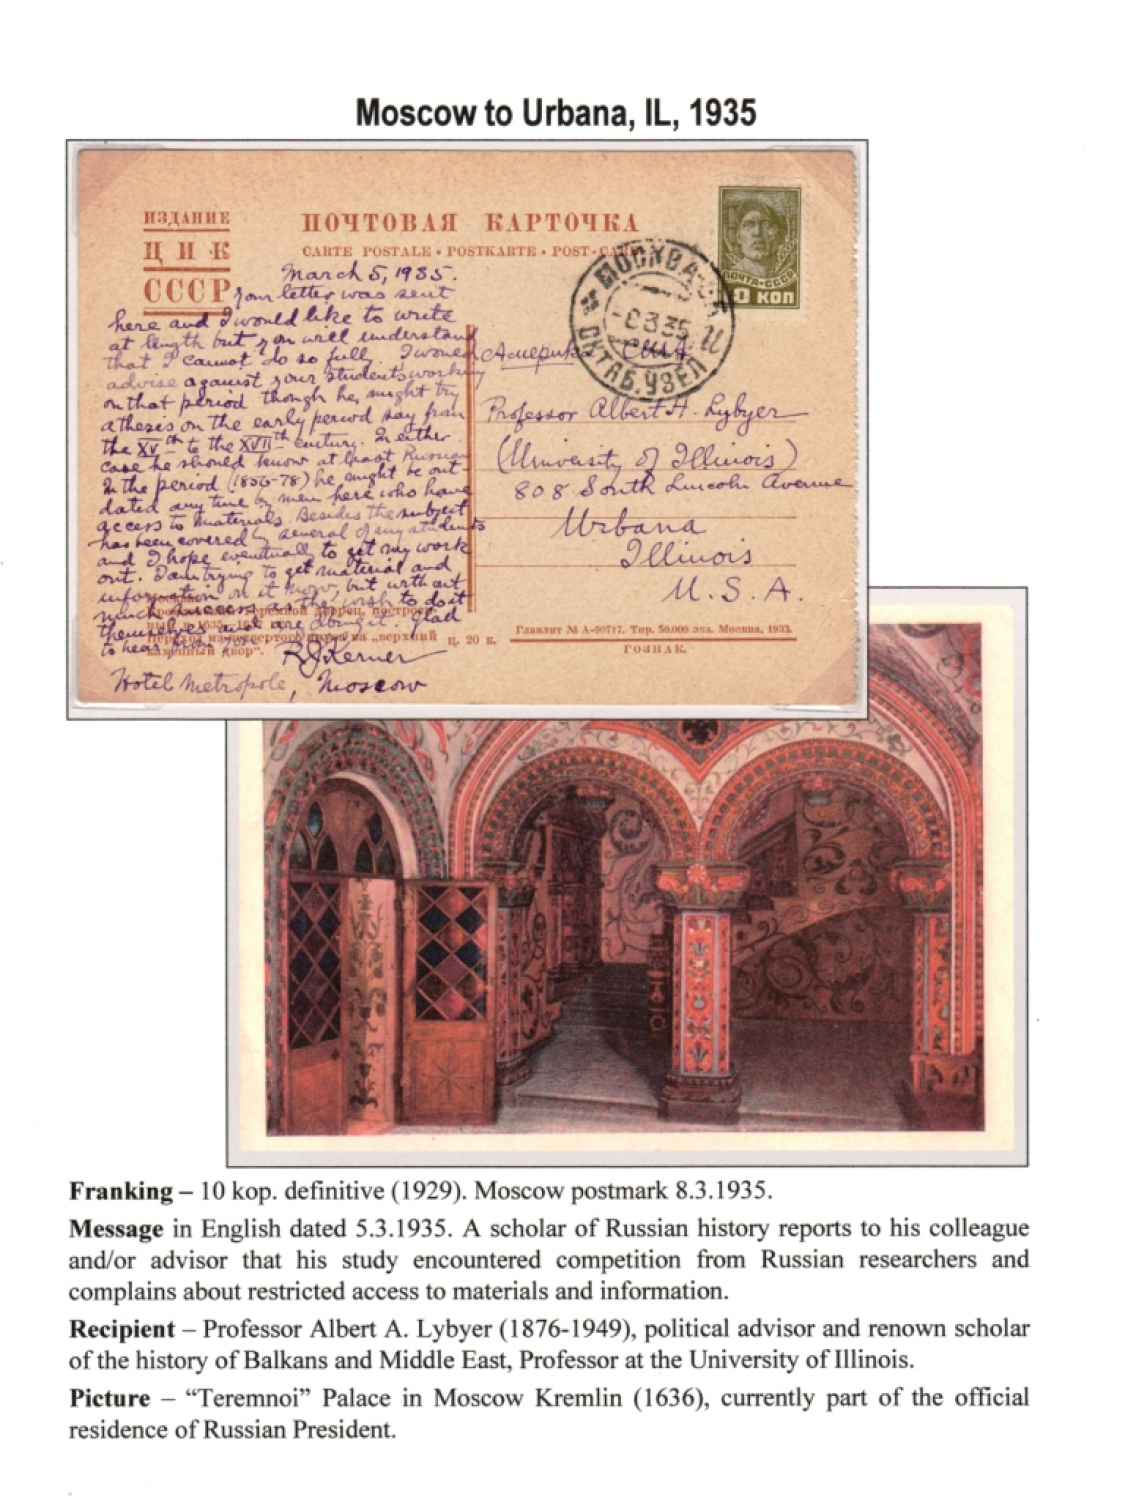 Moscow to Urbana, IL, 1935
ИЗДАНИЕ
ЦИК
СССР
ПОЧТОВАЯ КАРТОЧКА
CARTE POSTALE • POSTKARTE • POST-CARD
ПОЧТА-СССР
10 КОП
МОСКВА
8 3 35
ОКТЯБ. УЗЕЛ
March 5, 1935.
Your letter was sent
here and I would like to write
at length but you will understand
that I cannot do so fully. I would
advise against your students working
on that period though he might try
a thesis on the early period say from
the XVth to the XVIIth century. In either
case he should know at least Russian
In the period (1856-78) he might be out-
dated any time by men here who have
access to materials. Besides the subject
has been covered by several of my students
and I hope eventually to get my work
out. I am trying to get material and
information on it now, but without
much success as they wish to do it
themselves and are doing it. Glad
to hear from you.
RJKerner
Hotel Metropole, Moscow
Америка США
Professor Albert H. Lybyer
(University of Illinois)
808 South Lincoln Avenue
Urbana
Illinois
U.S.A.
каменный двор".
ц. 20 к.
Главлит № А-90717. Тир. 50.000 экз. Москва, 1933.
ГОЗНАК.
Franking – 10 kop. definitive (1929). Moscow postmark 8.3.1935.
Message in English dated 5.3.1935. A scholar of Russian history reports to his colleague
and/or advisor that his study encountered competition from Russian researchers and
complains about restricted access to materials and information.
Recipient – Professor Albert A. Lybyer (1876-1949), political advisor and renown scholar
of the history of Balkans and Middle East, Professor at the University of Illinois.
Picture – “Teremnoi” Palace in Moscow Kremlin (1636), currently part of the official
residence of Russian President.